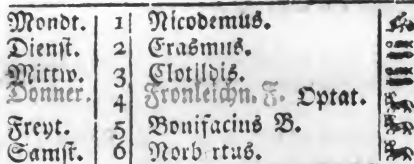 Mondt. 1 Nicodemus.
Dienſt. 2 Erasmus.
Mittw. 3 Clotildis.
Donner. 4 Fronleichn. F. Optat.
Freyt. 5 Bonifacius B.
Samſt. 6 Norb rtus.